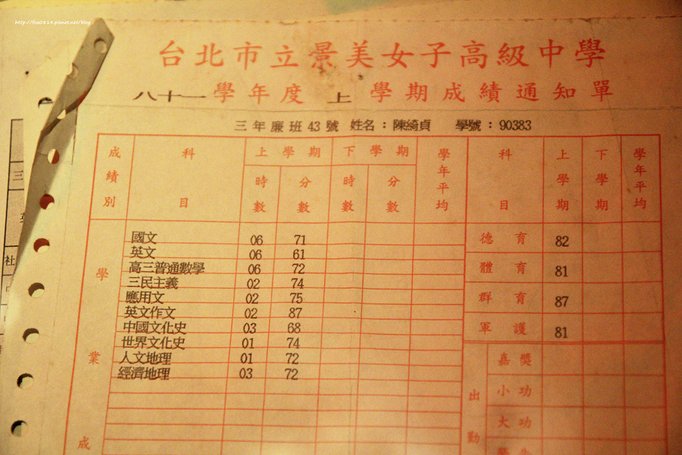 台北市立景美女子高級中學
八十一 學年度 上 學期成績通知單
三年廉班43號 姓名：陳綺貞 學號：90383
成績別 科目 上學期 下學期 學年平均 科目 上學期 下學期 學年平均
時數 分數 時數 分數
學業成
國文 06 71
英文 06 61
高三普通數學 06 72
三民主義 02 74
應用文 02 75
英文作文 02 87
中國文化史 03 68
世界文化史 01 74
人文地理 01 72
經濟地理 03 72
德育 82
體育 81
群育 87
軍護 81
出勤
嘉獎
小功
大功